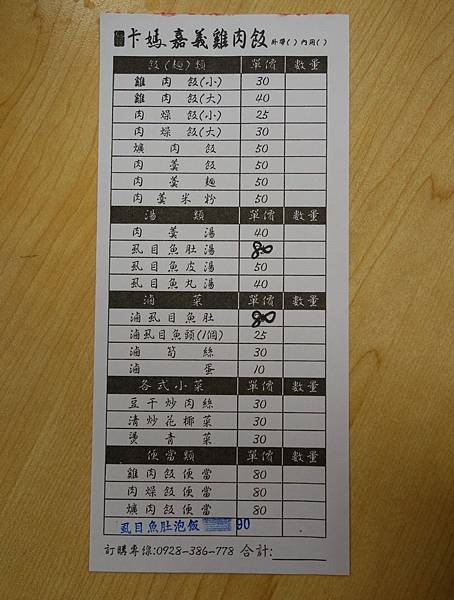 卡媽嘉義雞肉飯 外帶( ) 內用( )
飯(麵)類 單價 數量
雞肉飯(小) 30
雞肉飯(大) 40
肉燥飯(小) 25
肉燥飯(大) 30
爌肉飯 50
肉羹飯 50
肉羹麵 50
肉羹米粉 50
湯類 單價 數量
肉羹湯 40
虱目魚肚湯 80
虱目魚皮湯 50
虱目魚丸湯 40
滷菜 單價 數量
滷虱目魚肚 80
滷虱目魚頭(1個) 25
滷筍絲 30
滷蛋 10
各式小菜 單價 數量
豆干炒肉絲 30
清炒花椰菜 30
燙青菜 30
便當類 單價 數量
雞肉飯便當 80
肉燥飯便當 80
爌肉飯便當 80
虱目魚肚泡飯 90
訂購專線:0928-386-778 合計: